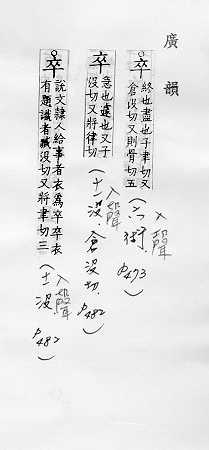 廣韻
卒 終也盡也子聿切又
倉没切又則骨切五
入聲
(六術.
P473)
卒 急也遽也又子
没切又將律切
入聲
(十一没.倉没切.
P482)
卒 說文隸人給事者衣為卒卒衣
有題識者臧没切又將聿切三
入聲
(十一没
P482)